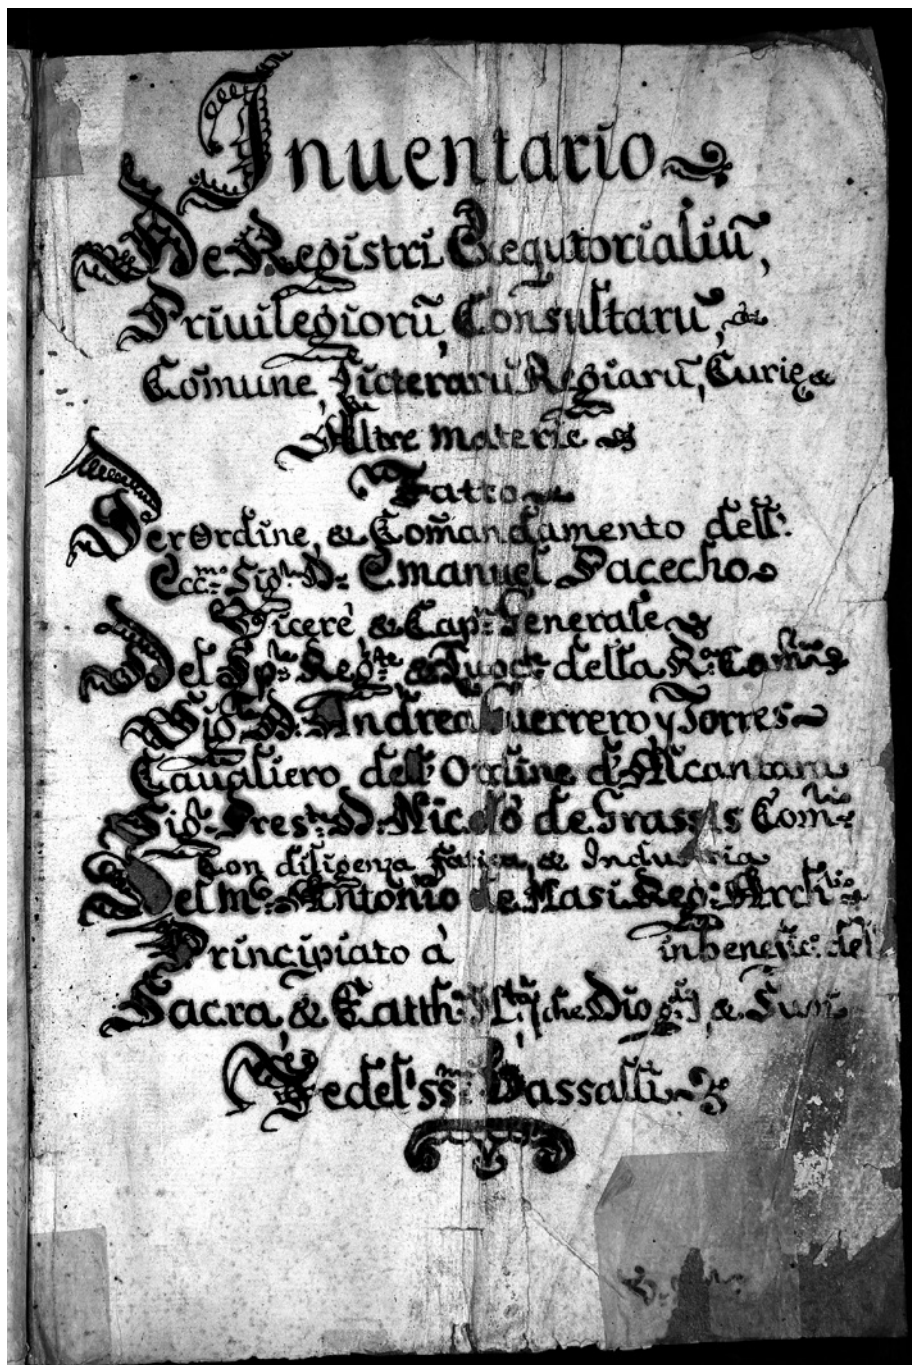 Inuentario
De Registri Exequtorialiũ,
Priuilegiorũ, Consultarũ, &
Comune, Licterarũ Regiarũ, Curię &
Altre materie
Fatto
Per Ordine, & Com̃andamento dell'
Ecc.mo Sig.r D. Emanuel Pacecho
Vicerè, & Cap.n Generale
Del Sp.le Reg.te & Luoc.te della R.a Cam.ra
Sig.r D. Andrea Guerrero y Torres
Caualiero dell' Ordine d'Alcantara
Sig.r Pres.te D. Nicolò de Grassis Com.rio
Con diligenza fatica, & Industria
Del m.co Antonio de Masi Reg.o Arch.rio
Principiato à in benefic.o del
Sacra, & Catth.ca (che Dio g.) & Suoi
Fedel'ss.mi Vassalli